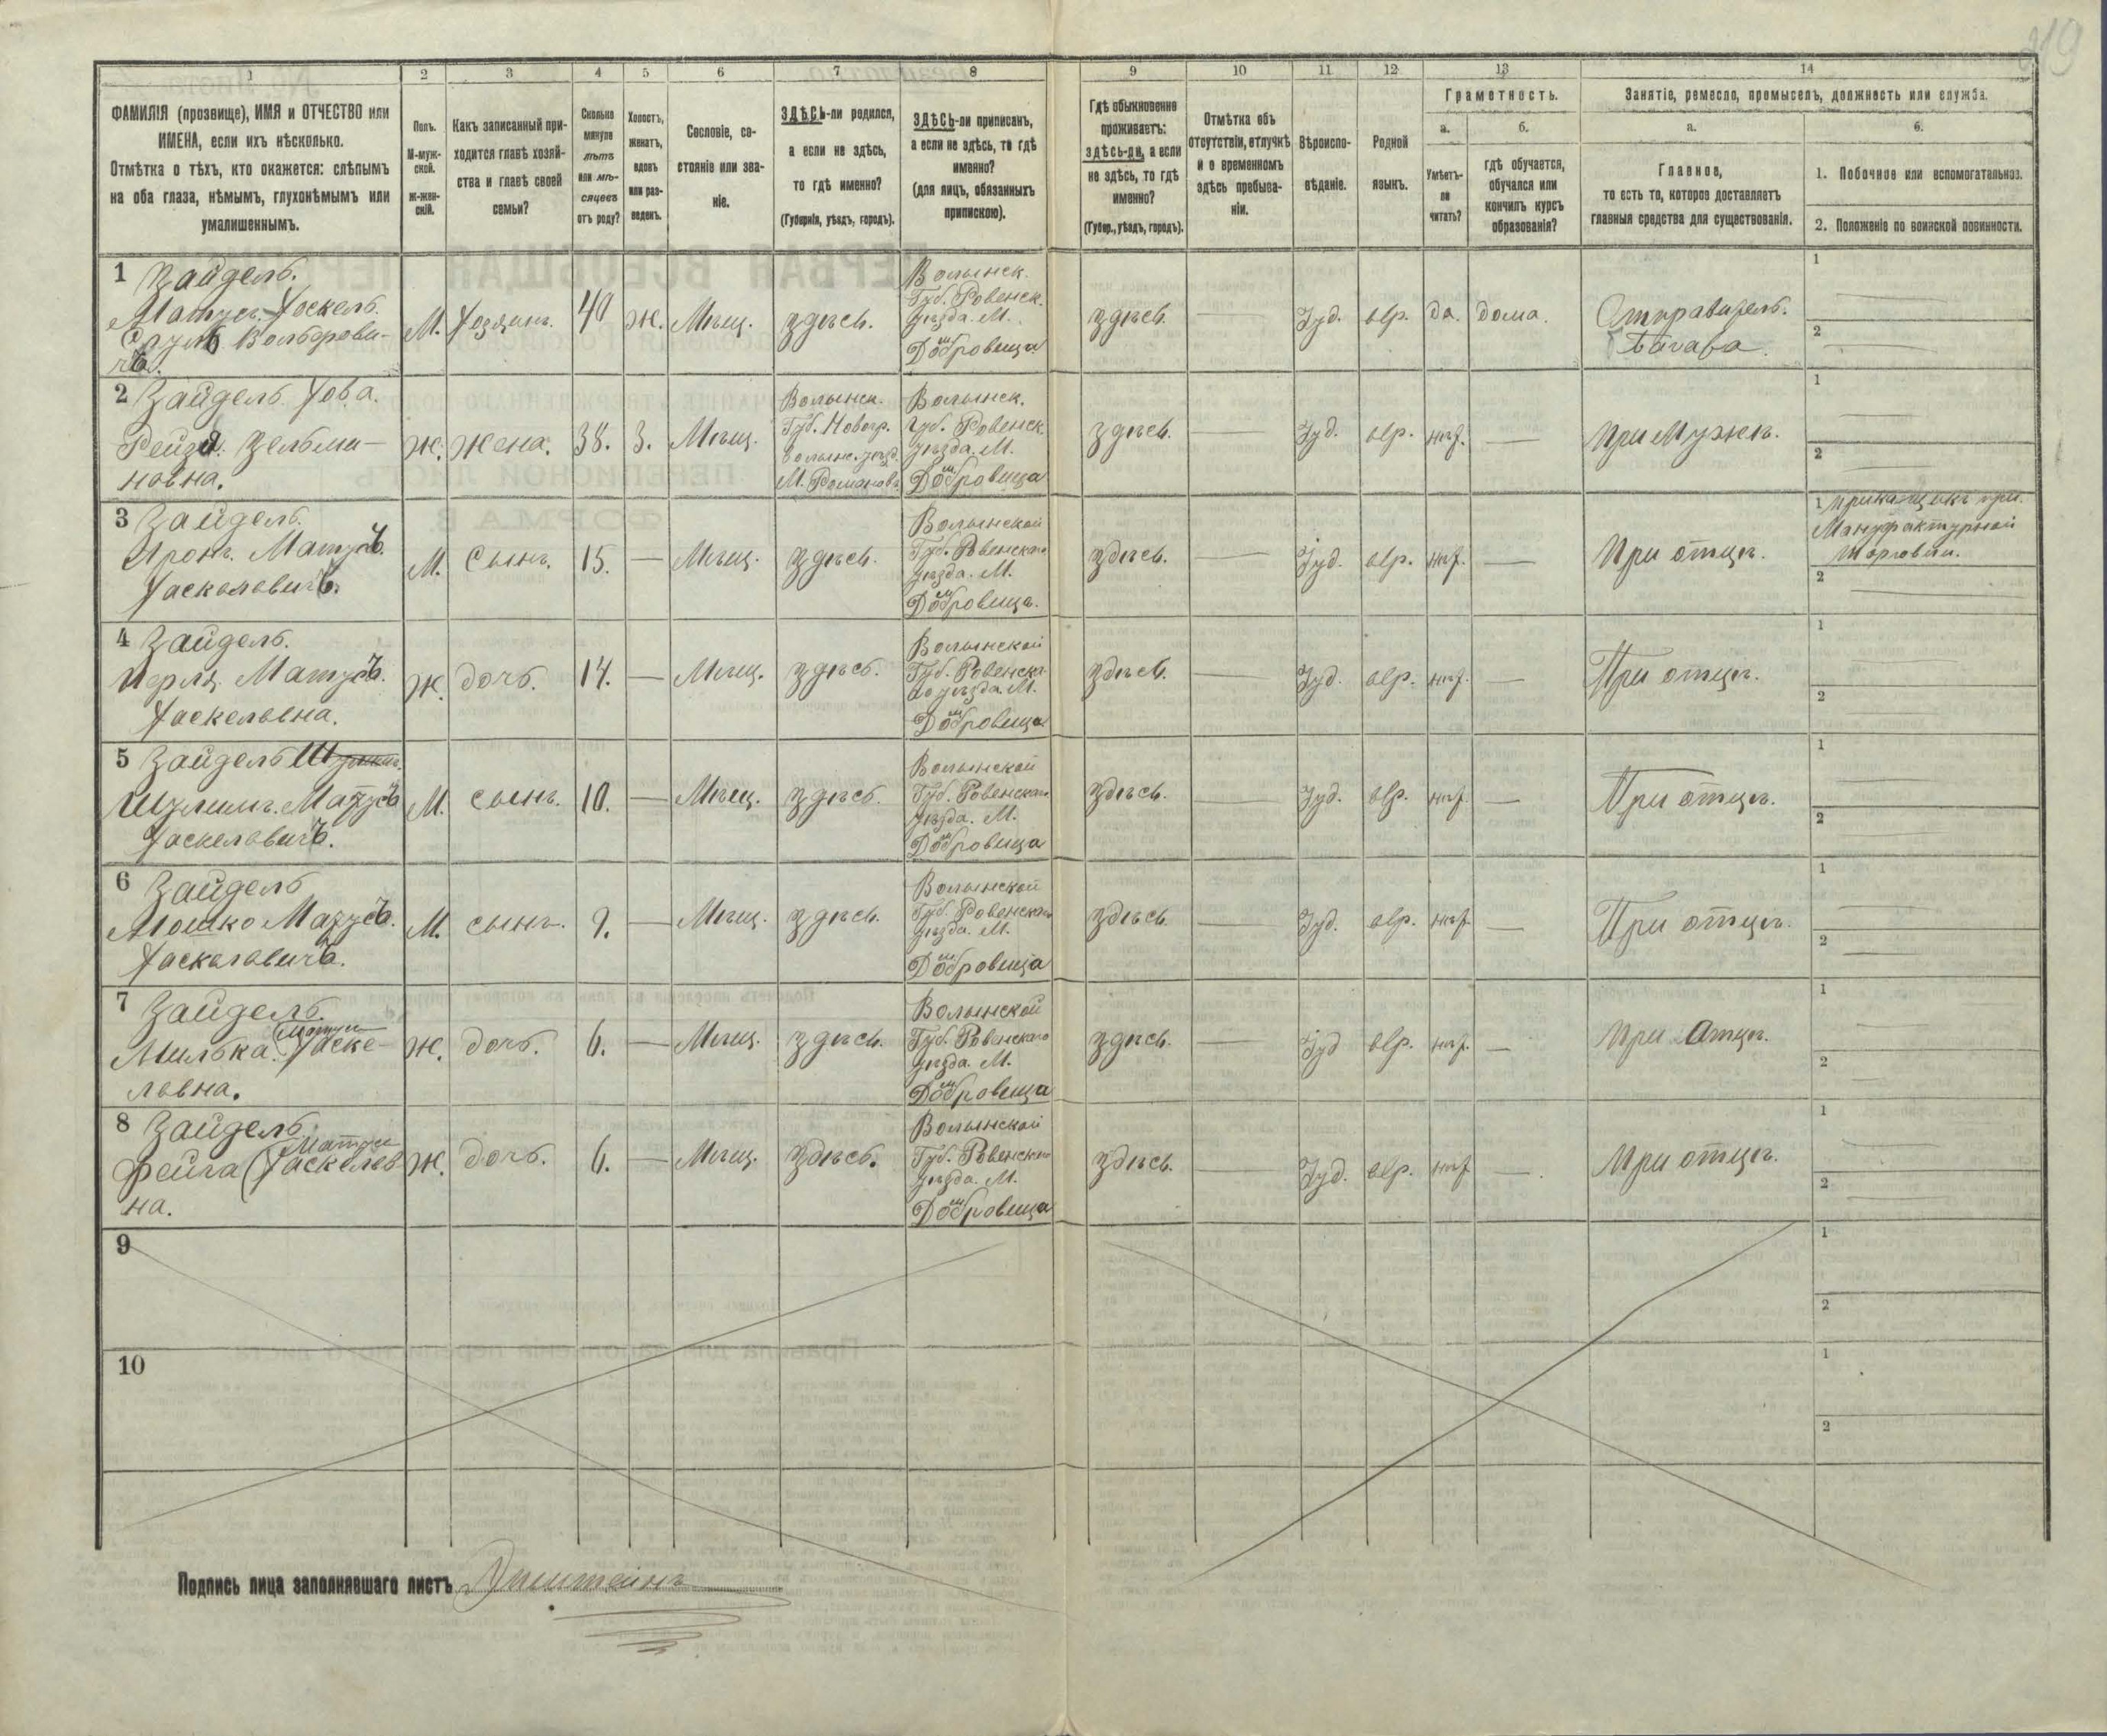 219
1 2 3 4 5 6 7 8 9 10 11 12 13 14
ФАМИЛІЯ (прозвище), ИМЯ и ОТЧЕСТВО или
ИМЕНА, если ихъ нѣсколько.
Отмѣтка о тѣхъ, кто окажется: слѣпымъ
на оба глаза, нѣмымъ, глухонѣмымъ или
умалишеннымъ.
Полъ.
М-муж-
ской.
ж-жен-
скій.
Какъ записанный при-
ходится главѣ хозяй-
ства и главѣ своей
семьи?
Сколько
минуло
лѣтъ
или мѣ-
сяцевъ
отъ роду?
Холостъ,
женатъ,
вдовъ
или раз-
веденъ.
Сословіе, со-
стояніе или зва-
ніе.
ЗДѢСЬ-ли родился,
а если не здѣсь,
то гдѣ именно?
(Губернія, уѣздъ, городъ).
ЗДѢСЬ-ли приписанъ,
а если не здѣсь, то гдѣ
именно?
(для лицъ, обязанныхъ
припискою).
Гдѣ обыкновенно
проживаетъ:
здѣсь-ли, а если
не здѣсь, то гдѣ
именно?
(Губер., уѣздъ, городъ).
Отмѣтка объ
отсутствіи, отлучкѣ
и о временномъ
здѣсь пребыва-
ніи.
Вѣроиспо-
вѣданіе.
Родной
языкъ.
Грамотность.
а.
Умѣетъ-
ли
читать?
б.
гдѣ обучается,
обучался или
кончилъ курсъ
образованія?
Занятіе, ремесло, промыселъ, должность или служба.
а.
Главное,
то есть то, которое доставляетъ
главныя средства для существованія.
б.
1. Побочное или вспомогательное.
2. Положеніе по воинской повинности.
1 Зайдель.
Матусъ-Хаскель.
Сруль Вольфрови-
чъ.
М. Хозяинъ. 40 Ж. Мѣщ. здѣсь.
Волынск.
Губ. Ровенск.
уѣзда. М.
Домбровица
здѣсь. — Іуд. евр. да. дома.
Отправитель.
товара.
1
2
2 Зайдель Хова.
Рейза. Зельма-
новна.
Ж. жена. 38. З. Мѣщ.
Волынск.
Губ. Новогр.
Волынс. уѣзд.
М. Романовъ
Волынск.
Губ. Ровенск.
уѣзда. М.
Домбровица
здѣсь. — Іуд. евр. нѣт. — При Мужѣ.
1
2
3 Зайдель.
Аронъ. Матусъ.
Хаскелевичъ.
М. Сынъ. 15. — Мѣщ. здѣсь.
Волынской
Губ. Ровенскаго
уѣзда. М.
Домбровица.
здѣсь. — Іуд. евр. нѣт. — При отцѣ.
1 Приказщикъ при.
Мануфактурной
торговли.
2
4 Зайдель.
Перля. Матусъ.
Хаскелевна.
Ж. дочь. 14. — Мѣщ. здѣсь.
Волынской
Губ. Ровенска-
го уѣзда. М.
Домбровица
здѣсь. — Іуд. евр. нѣт. — При отцѣ.
1
2
5 Зайдель
Шулимъ. Матусъ
Хаскелевичъ.
М. сынъ. 10. — Мѣщ. здѣсь.
Волынской
Губ. Ровенскаго
уѣзда. М.
Домбровица
здѣсь. — Іуд. евр. нѣт — При отцѣ.
1
2
6 Зайдель
Мошко Матусъ.
Хаскелевичъ.
М. сынъ. 9. — Мѣщ. здѣсь.
Волынской
Губ. Ровенскаго
уѣзда. М.
Домбровица
здѣсь. — Іуд. евр. нѣт — При отцѣ.
1
2
7 Зайдель.
Матус
Милька. Хаске-
левна.
Ж. дочь. 6. — Мѣщ. здѣсь.
Волынской
Губ. Ровенскаго
уѣзда. М.
Домбровица
здѣсь. — Іуд евр. нѣт. — При Отцѣ.
1
2
8 Зайдель.
Матус
Фейга (Хаскелев
на.
Ж. дочь. 6. — Мѣщ. здѣсь.
Волынской
Губ. Ровенскаго
уѣзда. М.
Домбровица
здѣсь. — Іуд. евр. нѣт — При отцѣ.
1
2
9
1
2
10
1
2
Подпись лица заполнявшаго листъ